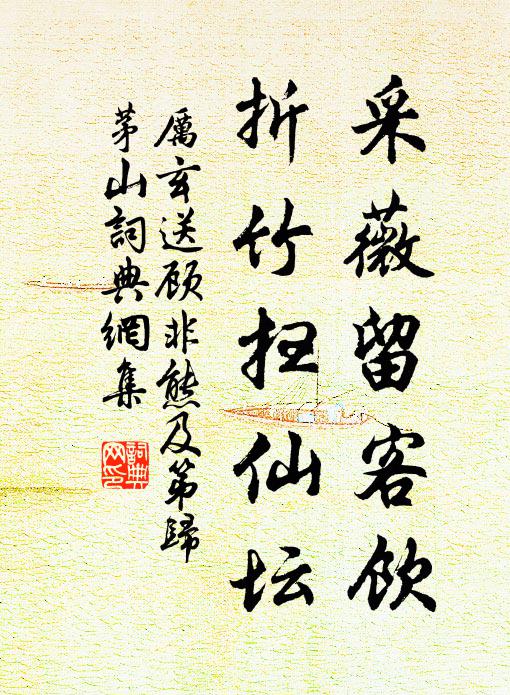 采薇留客饮
折竹扫仙坛
厲玄送顾非熊及第歸
茅山詞典網集
詞典
网印